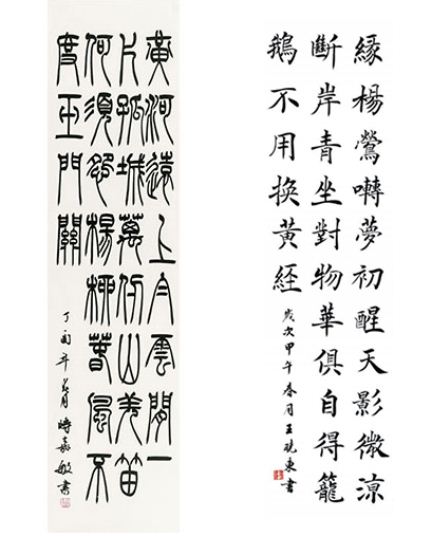 黃河遠上白雲間一
片孤城萬仞山羌笛
何須怨楊柳春風不
度玉門關
丁酉年月時嘉敏書
緣楊鶯囀夢初醒天影微涼
斷岸青坐對物華俱自得籠
鵝不用換黃経
歲次甲午春月王曉東書